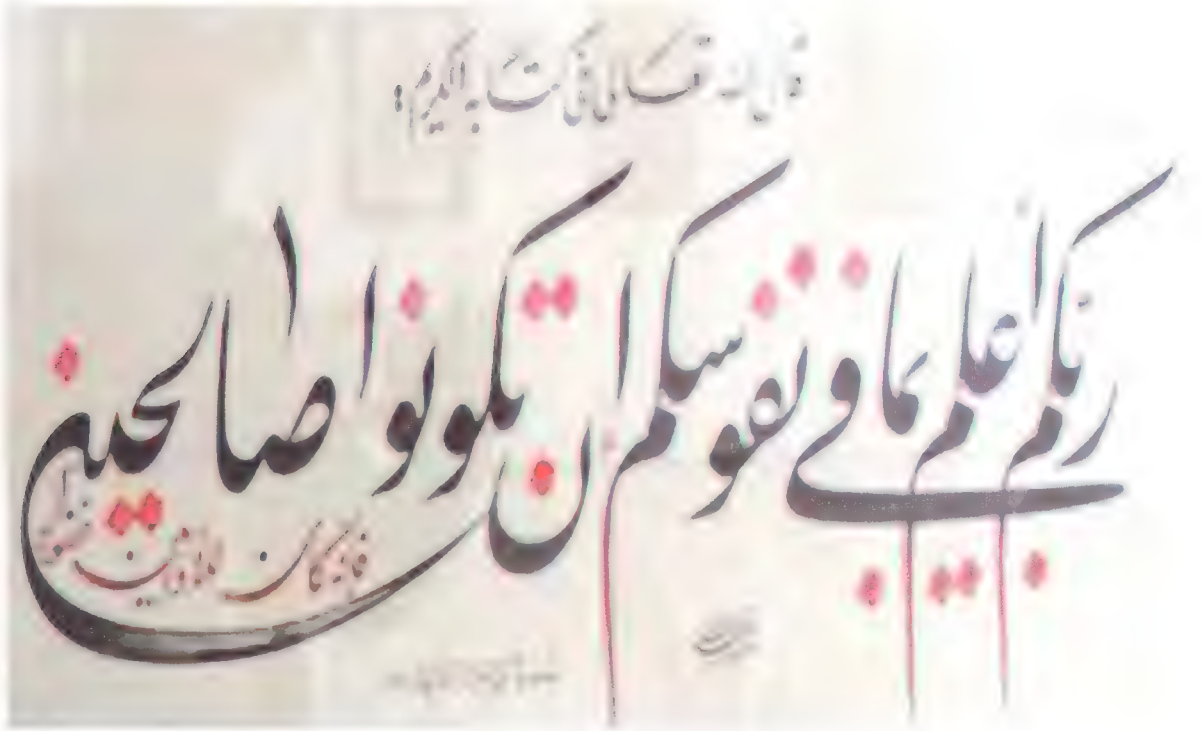 قال الله تعالى في كتابه الكريم:
ربكم أعلم بما في نفوسكم ان تكونوا صالحين
فانه كان للاوابين غفورا